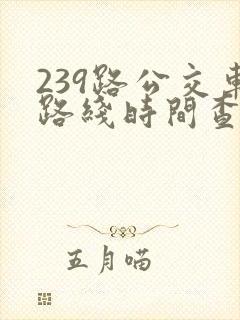 239路公交車
路綫時間查
五月喵